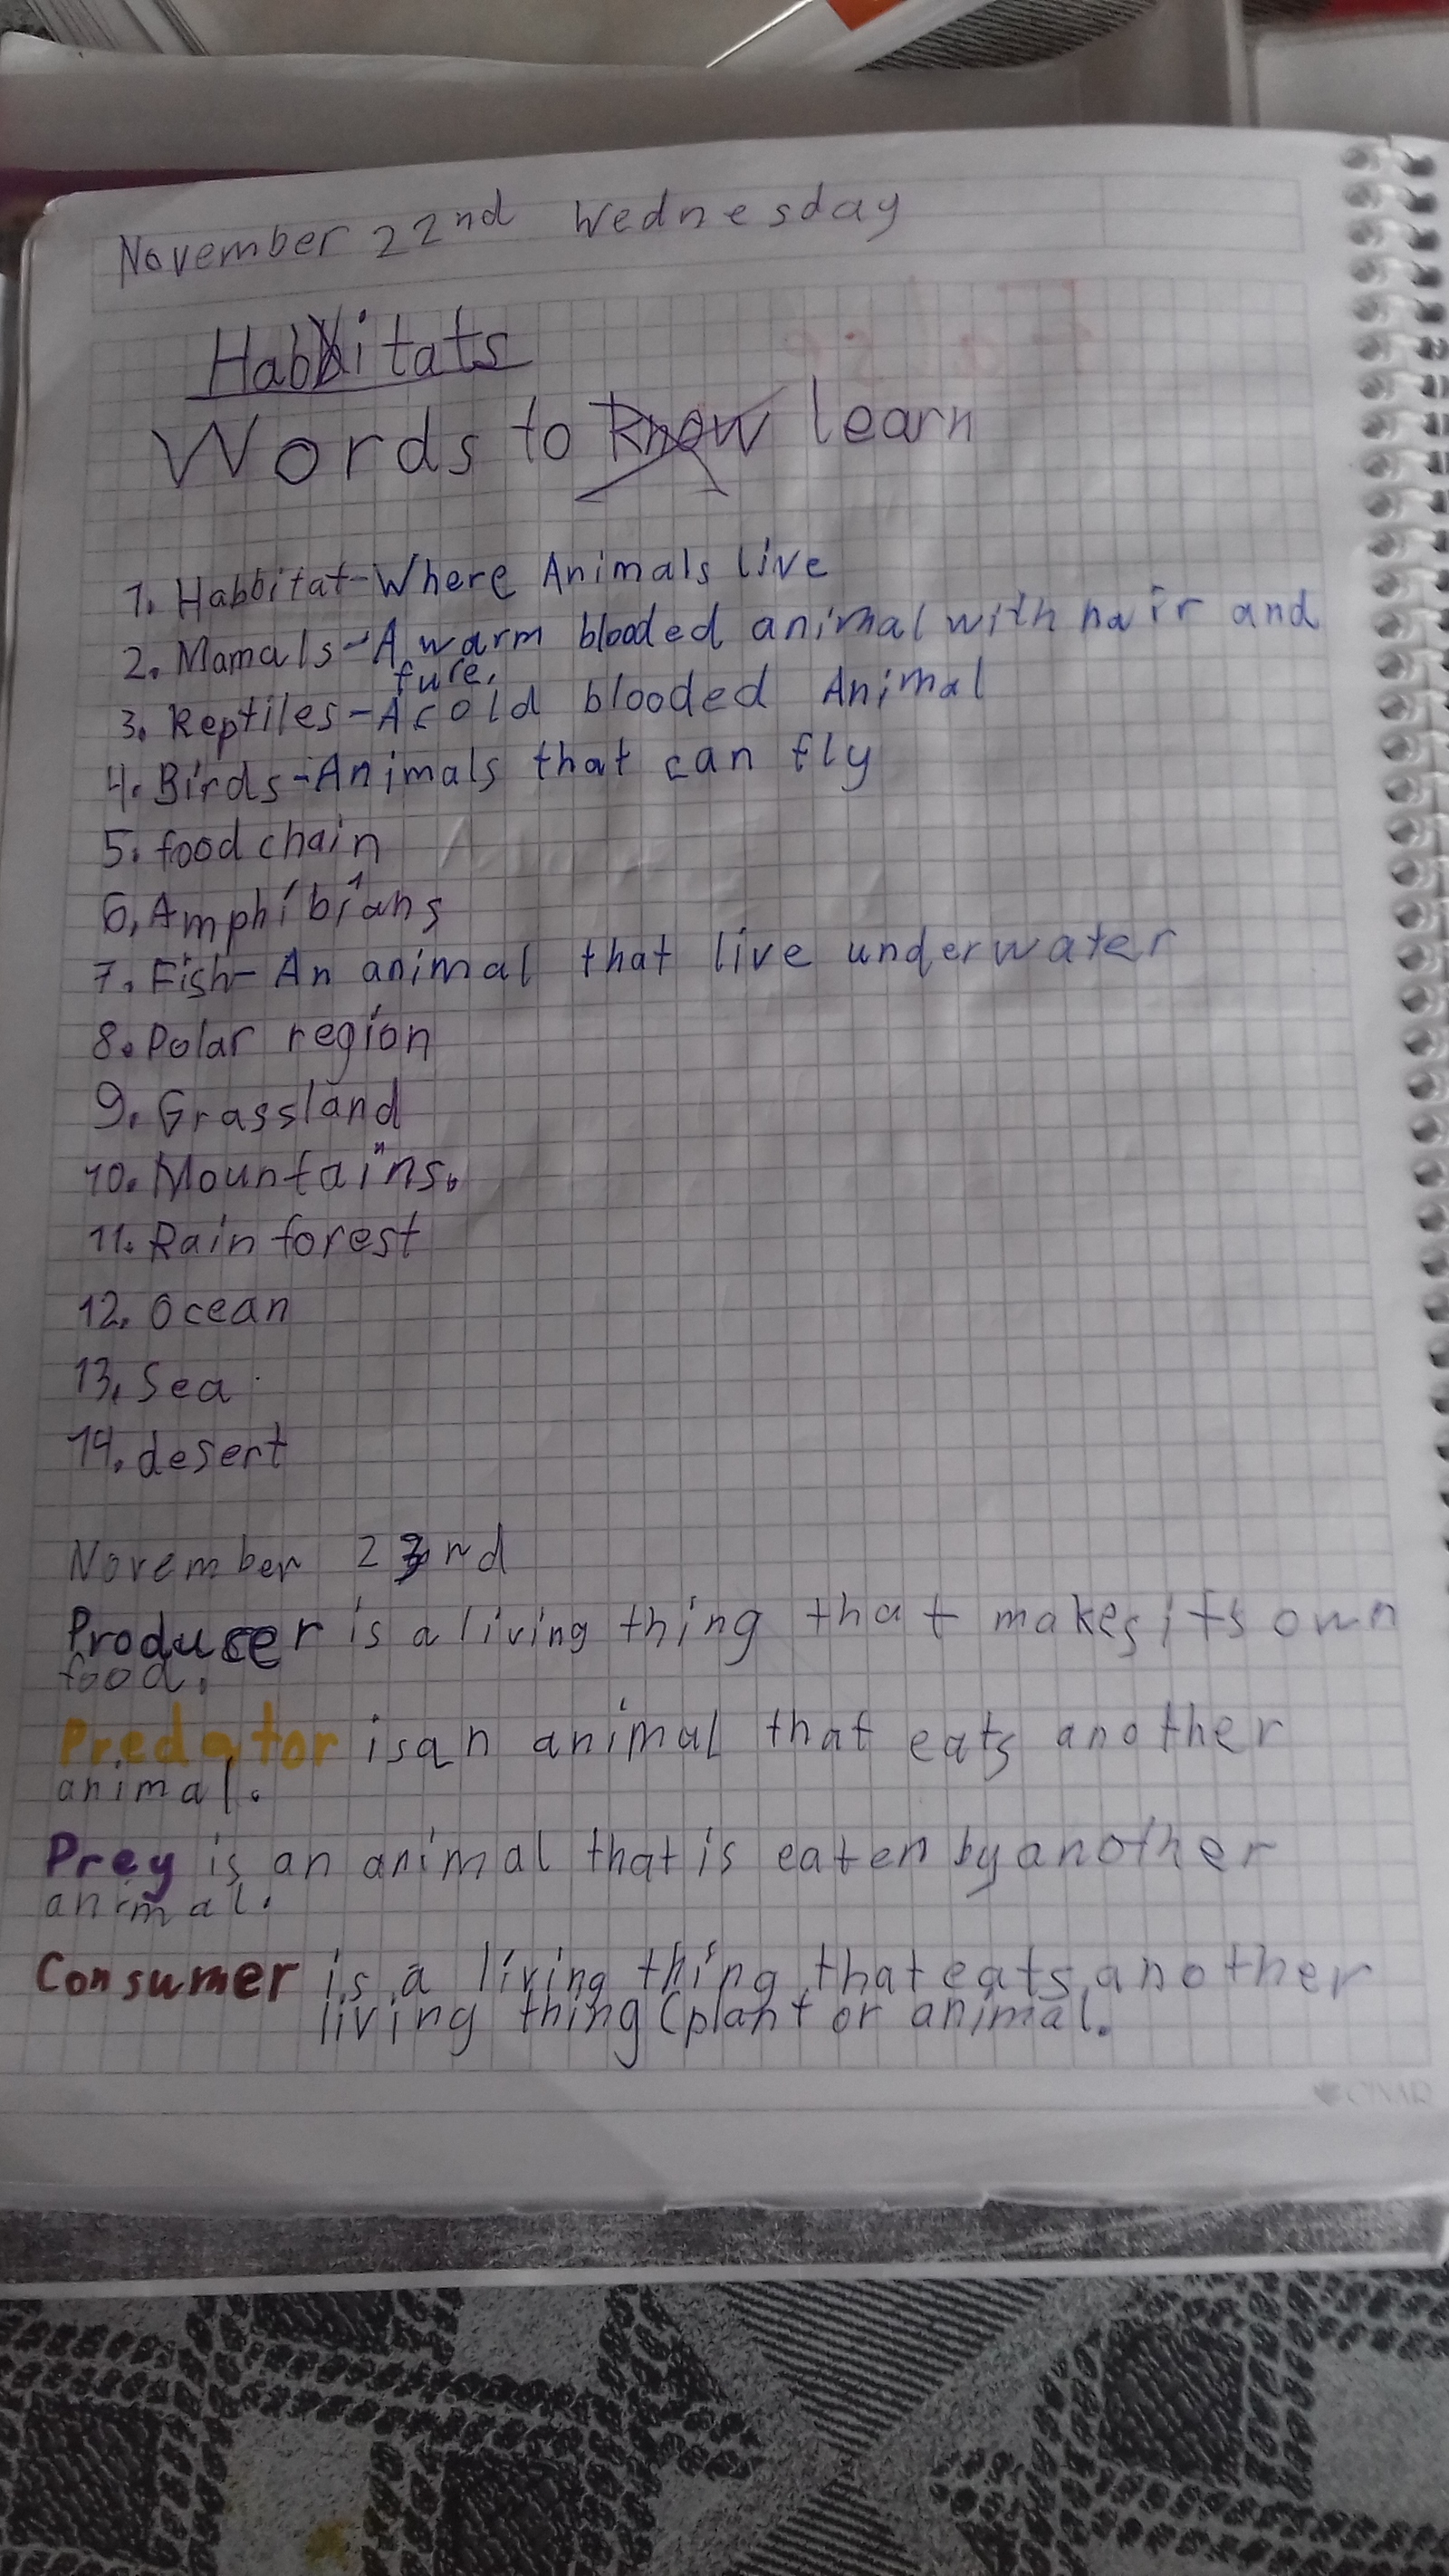 November 22nd Wednesday
Habitats
Words to know learn
1. Habbitat-Where Animals live
2. Mamals-A warm blooded animal with hair and
fure.
3. Reptiles-A cold blooded Animal
4. Birds-Animals that can fly
5. food chain
6. Amphibians
7. Fish-An animal that live underwater
8. Polar region
9. Grassland
10. Mountains.
11. Rain forest
12. Ocean
13. Sea
14. desert
November 23rd
Producer is a living thing that makes its own
food.
Predator is an animal that eats another
animal.
Prey is an animal that is eaten by another
animal.
Consumer is a living thing that eats another
living thing (plant or animal.